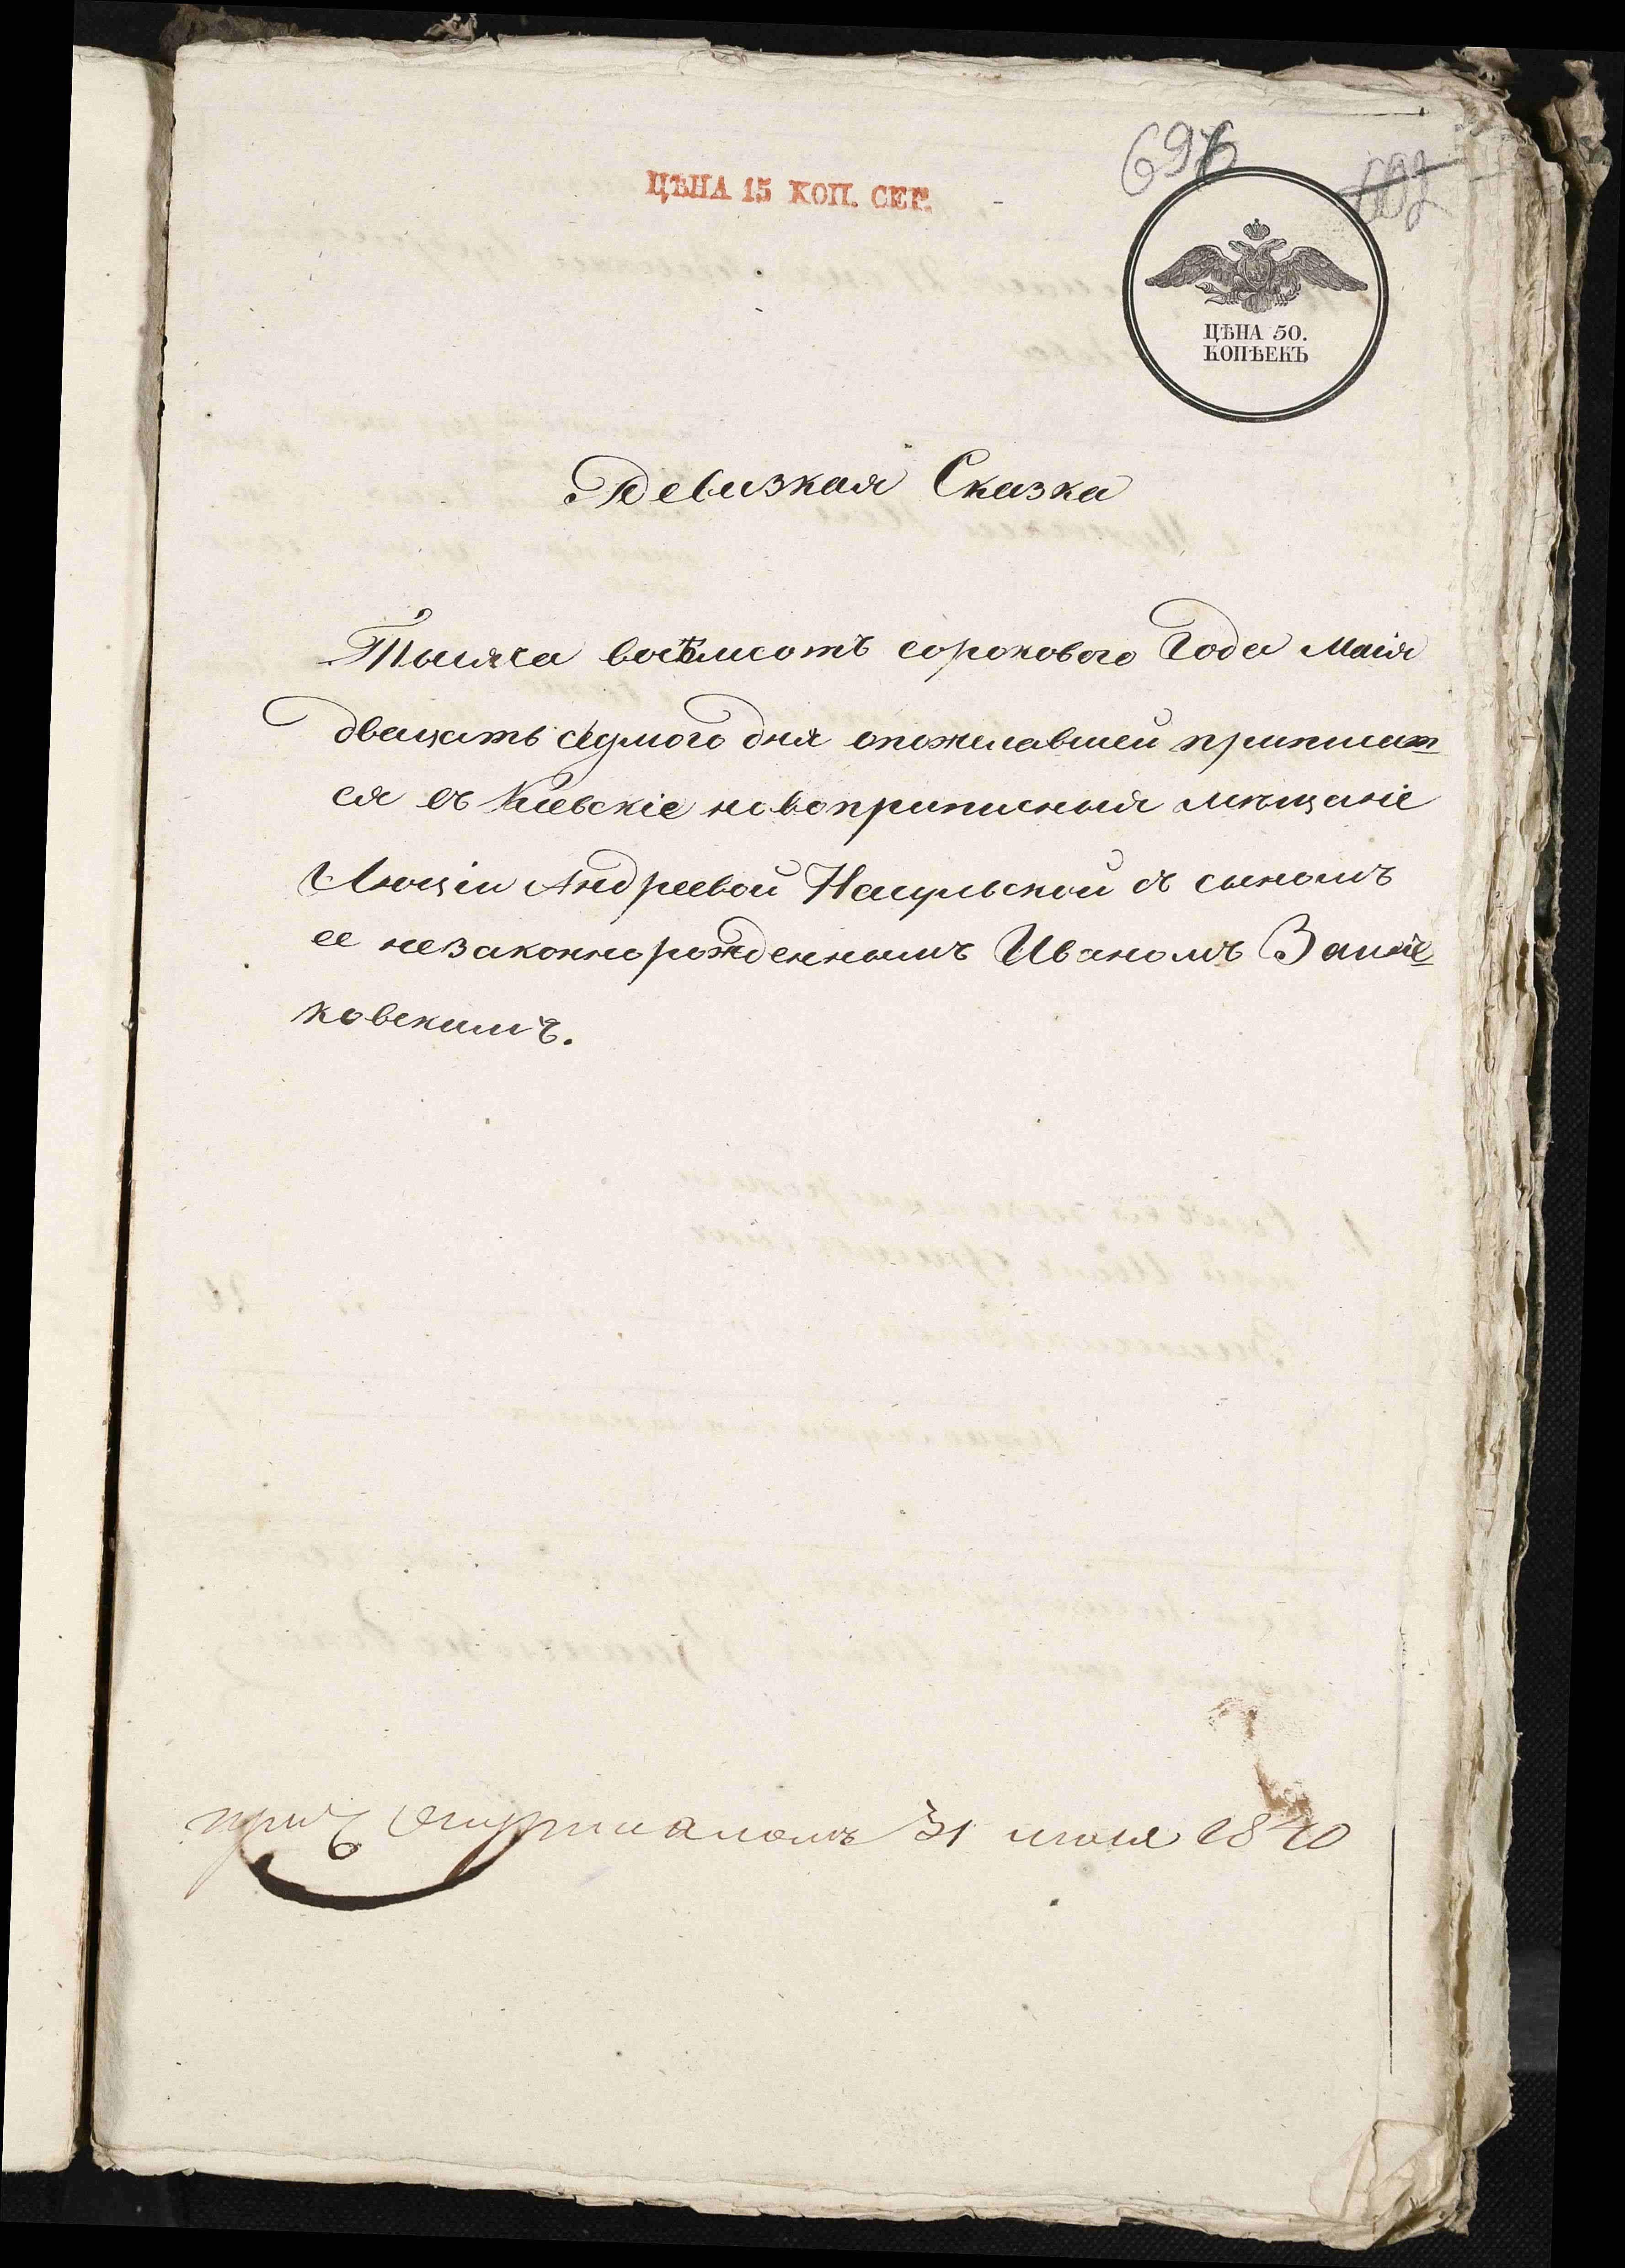 696
602
ЦѢНА 15 КОП. СЕР.
ЦѢНА 50.
КОПѢЕКЪ
Ревизкая Сказка
Тысяча восѣмсотъ сорокового Года Маія
двацать седмого дня опожелавшей приписат
ся въ Кіевскіе новоприписныя мѣщаніе
Люціи Андреевой Нацульской съ сыномъ
ее незаконнорожденнымъ Иваномъ
ковскимъ.
31 1840